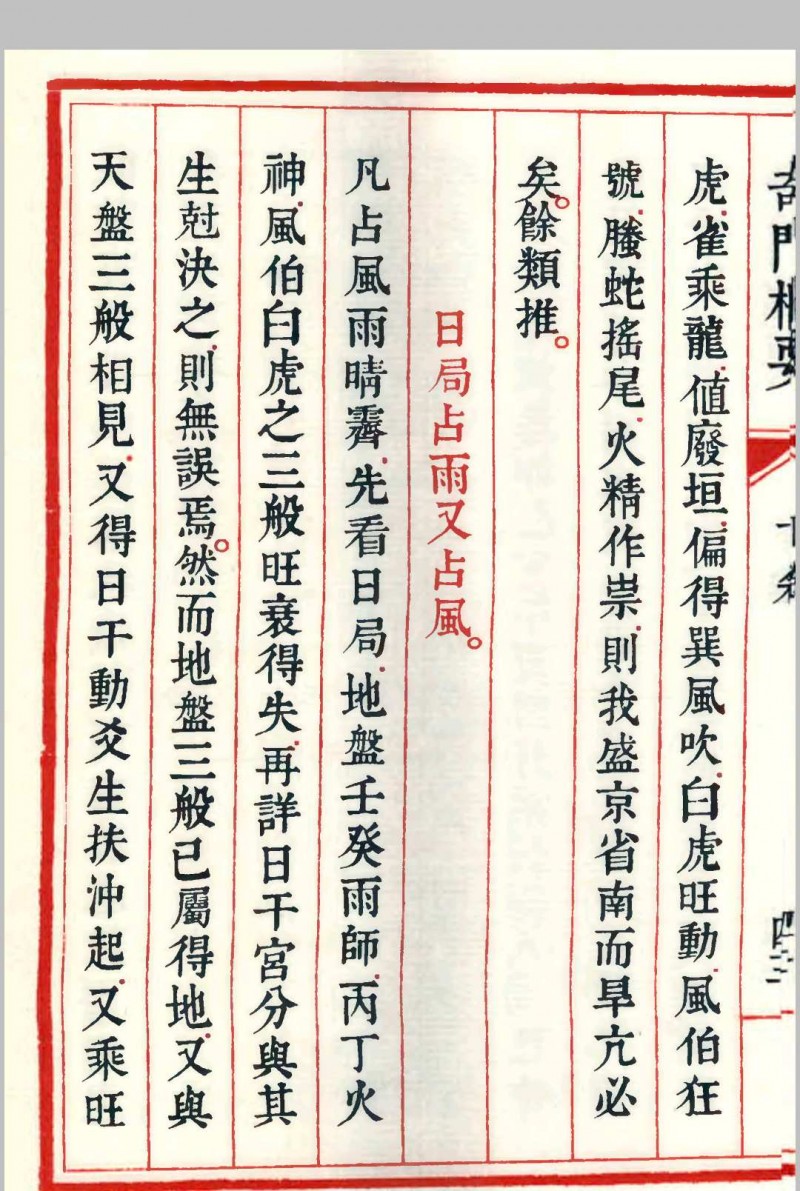 虎.雀乘龍.值廢垣.偏得巽風吹.白虎旺動.風伯狂
號.螣蛇搖尾.火精作祟.則我盛京省南而旱亢必
矣。餘類推。
日局占雨又占風。
凡占風雨晴霽.先看日局.地盤壬癸雨師.丙丁火
神.風伯白虎之三般旺衰得失.再詳日干宮分與其
生尅決之.則無誤焉。然而地盤三般已屬得地.又與
天盤三般相見.又得日干動爻生扶沖起.又乘旺